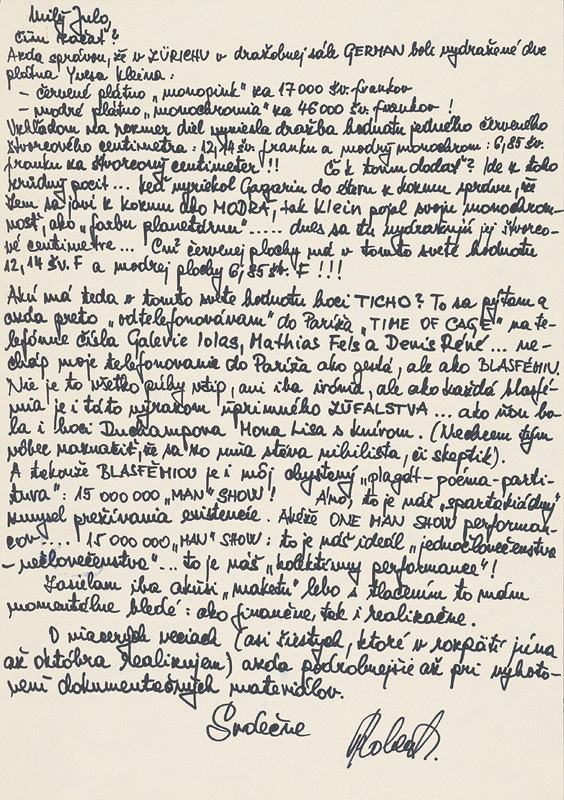 Milý Julo,
Čím začať?
Azda správou, že v ZÜRICHU v dražobnej sále GERMAN boli vydražené dve
plátna Yvesa Kleina:
– červené plátno „monopink" za 17 000 šv. frankov
– modré plátno „monochromia" za 46 000 šv. frankov !
Vzhľadom na rozmer diel vyniesla dražba hodnotu jedného červeného
štvorcového centimetra: 12,14 šv. franku a modrý monochrom: 6,85 šv.
franku za štvorcový centimeter!!! Čo k tomu dodať? Ide z toho
pocit... keď vyriekol Gagarin do éteru z kozmu správu, že
Zem sa javí z kozmu ako MODRÁ, tak Klein pojal svoju monochrom-
nosť, ako „farbu planetárnu"..... dnes sa tu vydražujú jej štvorco-
vé centimetre... Cm² červenej plochy má v tomto svete hodnotu
12,14 šv. F a modrej plochy 6,85 šv. F !!!
Akú má teda v tomto svete hodnotu hoci TICHO? To sa pýtam a
azda preto „odtelefonovávam" do Paríža „TIME OF CAGE" na te-
lefónne čísla Galérie Iolas, Mathias Fels a Denis René... ne-
cháp moje telefonovanie do Paríža ako gestá, ale ako BLASFÉMIU.
Nie je to všetko púhy vtip, ani iba irónia, ale ako každá blasfé-
mia je i táto výrazom úprimného ZÚFALSTVA... ako ňou bo-
la i hoci Duchampova Mona Lisa s knírom. (Nechcem tým
vôbec naznačiť, že sa zo mňa stáva nihilista, či skeptik).
A takouže BLASFÉMIOU je i môj chystaný „plagát-poéma-parti-
túra": 15 000 000 „MAN" SHOW! Áno, to je náš „spartakiádny"
zmysel prežívania existencie. Akéže ONE MAN SHOW performan-
cov..... 15 000 000 „MAN" SHOW: to je náš ideál „jednočlovečenstva
– nečlovečenstva"... to je náš „kolektívny performance"!
Zasielam iba akúsi „maketu" lebo s tlačením to mám
momentálne bledé: ako finančne, tak i realizačne.
O viacerých veciach (asi šiestych, ktoré v rozpätí júna
až októbra realizujem) azda podrobnejšie až pri vyhoto-
vení dokumentačných materiálov.
Srdečne Robert.